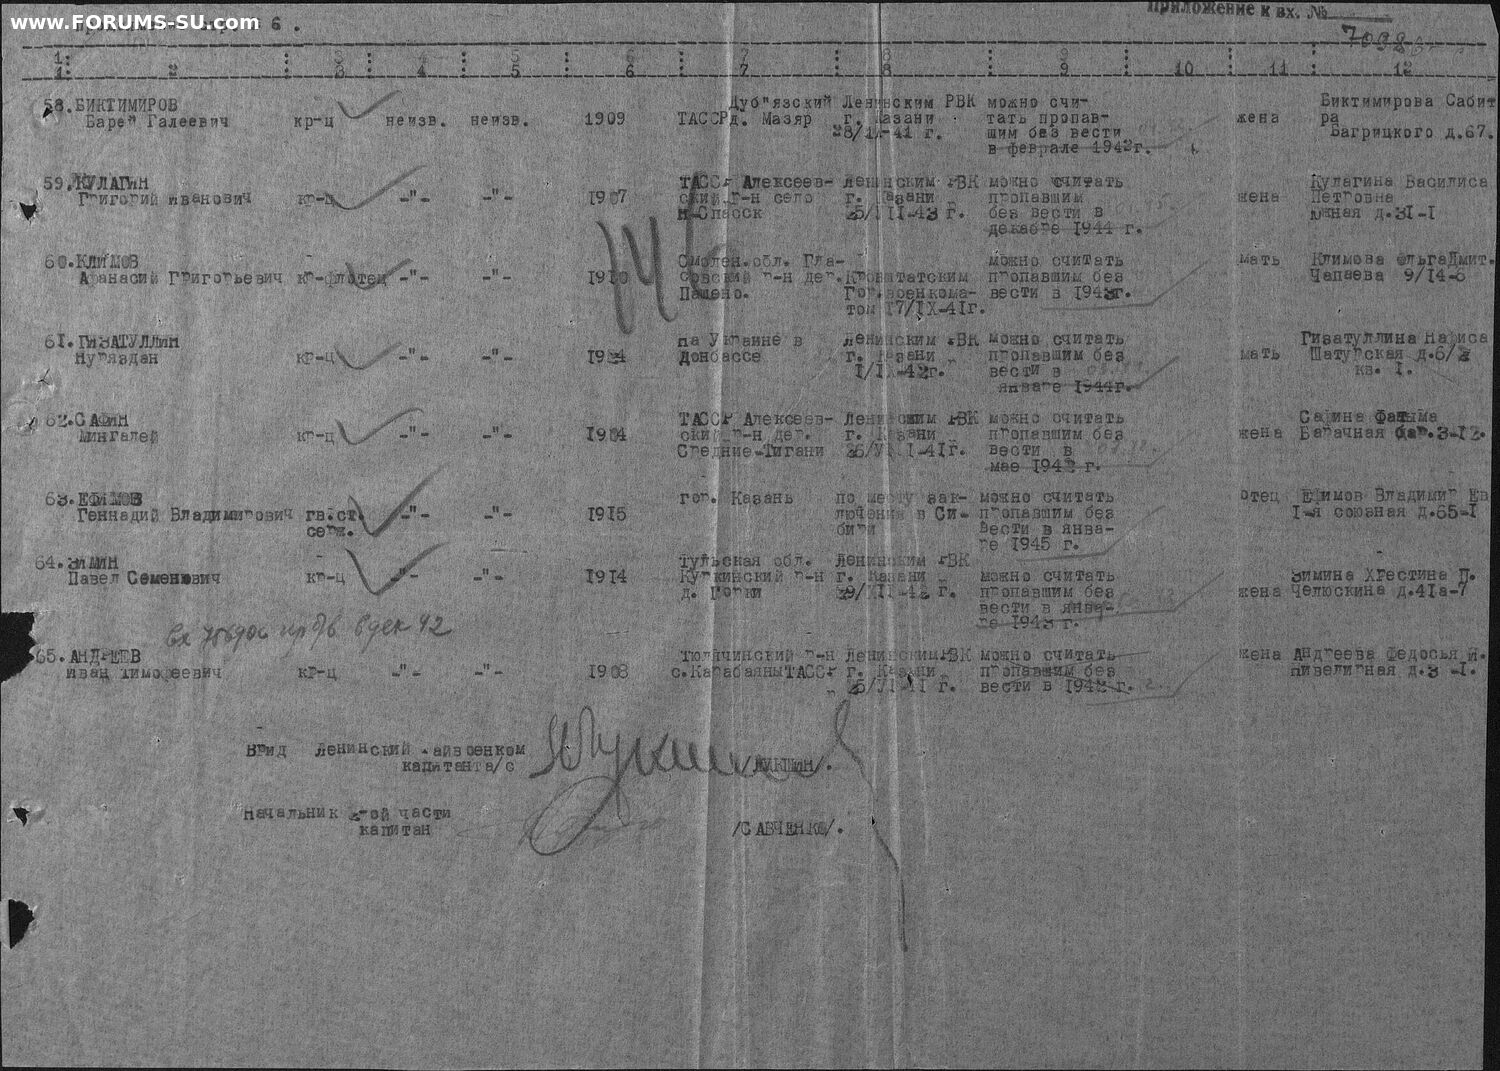 www.FORUMS-SU.com
6.
Приложение к вх. №
1 2 3 4 5 6 7 8 9 10 11 12
58. БИКТИМИРОВ Дуб"язский Ленинским РВК можно счи- Биктимирова Сабит
Барей Галеевич кр-ц неизв. неизв. 1909 ТАССР д. Мазяр г. Казани тать пропав- жена ра
28/IX-41 г. шим без вести Багрицкого д.67.
в феврале 1942г.
59. КУЛАГИН ТАССР Алексеев- Ленинским РВК можно считать Кулагина Василиса
Григорий Иванович кр-ц -"- -"- 1907 ский р-н село г. Казани пропавшим жена Петровна
н-Спасск без вести в Южная д.31-1
декабре 1944 г.
60. КЛИМОВ Смолен.обл. Гла- можно считать Климова Ольга Дмит.
Афанасий Григорьевич кр-флотец -"- -"- р-н дер. Кронштатским пропавшим без мать Чапаева 9/14-6
Пашено. Гор.военкома- вести в
том 17/IX-41г.
61. ГИЗАТУЛЛИН на Украине в Ленинским РВК можно считать Гизатуллина Нафиса
Нурявдан кр-ц -"- -"- 1924 Донбассе г. Казани пропавшим без мать Шатурская д.6/2
1/IX-42г. вести в кв. 1.
январе 1944г.
62. САФИН ТАССР Алексеев- Ленинским РВК можно считать Сафина Фатыма
Мингалей кр-ц -"- -"- 1904 ский р-н дер. г. Казани пропавшим без жена Барачная бар.3-12.
Средние-Тигани 26/VIII-41г. вести в
мае 1942 г.
63. ЕФИМОВ гор. Казань по месту зак- можно считать отец Ефимов Владимир Ев
Геннадий Владимирович гв.ст. -"- -"- 1915 лючения в Си- пропавшим без 1-я союзная д.65-1
серж. бири вести в янва-
ре 1945 г.
64. ЗИМИН Тульская обл. Ленинским РВК
Павел Семенович кр-ц -"- -"- 1914 Куркинский р-н г. Казани можно считать Зимина Христина П.
д. Горки 29/XII-42 г. пропавшим без жена Челюскина д.41а-7
вести в янва-
ре 1943 г.
в дек 42
65. АНДРЕЕВ Тюлячинский р-н Ленинским РВК можно считать жена Андреева Федосья И.
Иван Тимофеевич кр-ц -"- -"- 1908 с.Карабаяны ТАССР г. Казани пропавшим без Нивелирная д.3 -1.
25/VI-41 г. вести в 1942 г.
Врид Ленинский Райвоенком
капитан а/с /ЛУКШИН/.
Начальник 2-ой части
капитан /САВЧЕНКО/.